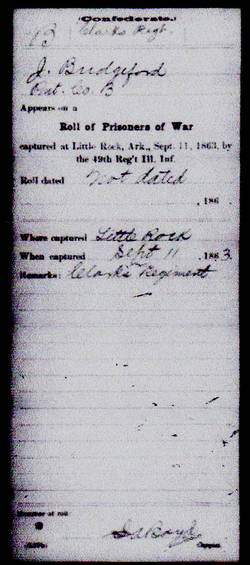 (Confederate.)
B Clarks Regt.
J. Bridgeford
Pvt. Co. B
Appears on a
Roll of Prisoners of War
captured at Little Rock, Ark., Sept. 11, 1863, by
the 49th Reg't Ill. Inf.
Roll dated
Not dated
, 186 .
Where captured Little Rock
When captured Sept 11, 1863.
Remarks: Clarks Regiment
Number of roll:
Copyist.